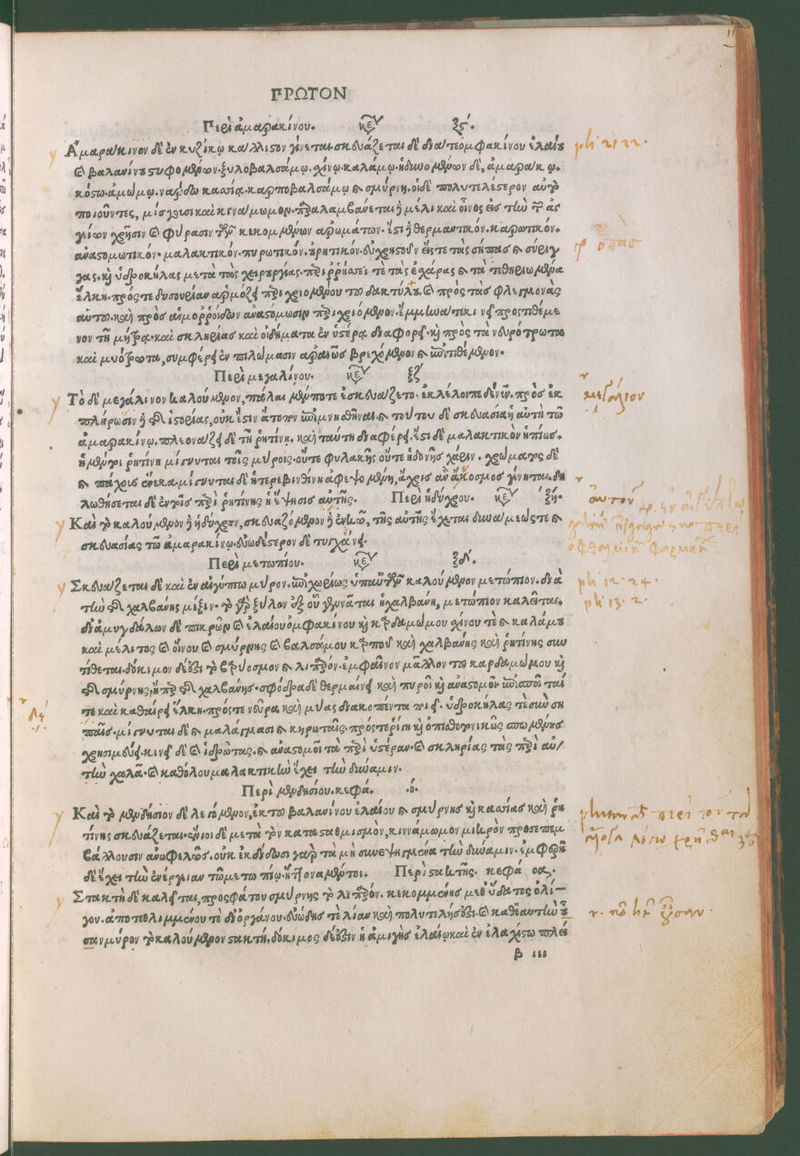 ΠΡΩΤΟΝ
Περὶ ἀμαρακίνου. κεφ ξϛ΄.
Ἀμαράκινον δὲ ἐν κυζίκῳ κάλλιστον γίνεται. σκευάζεται δὲ διά τε ὀμφακίνου ἐλαίου
καὶ βαλανίνου στυφομένων. ξυλοβαλσάμῳ. χίνῳ. καλάμῳ. ἡδυσομένων δὲ, ἀμαράκῳ.
κόστῳ. ἀμώμῳ. νάρδῳ κασσίᾳ. καρποβαλσάμῳ καὶ σμύρνῃ. οἱ δὲ πολυτελέστερον αὐτὸ
ποιοῦντες, μίσγουσι καὶ κινάμωμον. παραλαμβάνεται δὲ μέλι καὶ οἶνος εἰς τὴν τῶν ἀγ
γείων χρῆσιν καὶ φύρασιν τῶν κεκομμένων ἀρωμάτων. ἔστι δὲ θερμαντικόν. καρωτικόν.
ἀναστομωτικόν. μαλακτικόν. πυρωτικόν. οὐρητικόν. εὐχρηστοῦν εἴς τε τὰς σήπας καὶ σύριγ
γας. καὶ ὑδροκήλας μετὰ τὰς χειρουργίας. περιρρήσσει τὲ τὰς ἐσχάρας καὶ τὰ τεθηριωμένα
ἕλκη. πρός τε δυσουρίαν ἁρμόζει περιχριομένου τοῦ δακτύλου. καὶ πρὸς τὰς φλεγμονὰς
αὐτοῦ. καὶ πρὸς αἱμορροΐδων ἀναστόμωσιν περιχριόμενον. ἔμμηνά τε κινεῖ προστιθέμε
νον τῇ μήτρᾳ. καὶ σκληρίας καὶ οἰδήματα ἐν ὑστέρᾳ διαφορεῖ. καὶ πρὸς τὰ νευρότρωτα
καὶ μυότρωτα, συμφέρει ἐν πιλώμασιν ἀραιῶς βρεχόμενον καὶ ἐπιτιθέμενον.
Περὶ μεγαλίνου. κεφ ξζ
Τὸ δὲ μεγάλινον καλούμενον, πάλαι μέν ποτε ἐσκευάζετο. ἐκλέλοιπε δὲ νῦν. πρὸς ἐκ
πλήρωσιν δὲ τῆς ἱστορίας, οὐκ ἔστιν ἄτοπον ἐπιμνησθῆναι καὶ τούτου δὲ σκευασία ἡ αὐτὴ τῷ
ἀμαρακίνῳ. πλεονάζει δὲ τῇ ῥητίνῃ. καὶ ταύτῃ διαφέρει. ἔστι δὲ μαλακτικὸν ἠπίως.
ἡ μέντοι ῥητίνη μίγνυται τοῖς μύροις. οὔτε φυλακῆς οὔτε ἡδονῆς χάριν. χρώματος δὲ
καὶ πάχους ἕνεκα. μίγνυται δὲ ἡ τερεβινθίνη ἀφεψομένη, ἄχρις ἂν ἄνοσμος γίνηται. δη
λωθήσεται δὲ ἐν τοῖς περὶ ῥητίνης ἡ ἕψησις αὐτῆς. Περὶ ἡδύχρου. κεφ ξη΄.
Καὶ τὸ καλούμενον δὲ ἡδύχρουν, σκευαζόμενον δὲ ἐν κῷ, τῆς αὐτῆς ἔχεται δυνάμεώς τε καὶ
σκευασίας τῷ ἀμαρακίνῳ. εὐωδέστερον δὲ τυγχάνει.
Περὶ μετωπίου. κεφ ξθ.
Σκευάζεται δὲ καὶ ἐν αἰγύπτῳ μύρον. ἐπιχωρίως ὑπ' αὐτῶν καλούμενον μετώπιον. διὰ
τὴν τῆς χαλβάνης μίξιν. τὸ γὰρ ξύλον ἐξ οὗ γεννᾶται ἡ χαλβάνη, μετώπιον καλεῖται.
δι' ἀμυγδάλων δὲ πικρῶν καὶ ἐλαίου ὀμφακίνου καὶ καρδαμώμου χίνου τὲ καὶ καλάμου
καὶ μέλιτος καὶ οἴνου καὶ σμύρνης καὶ βαλσάμου καρποῦ καὶ χαλβάνης καὶ ῥητίνης συν
τίθεται. δόκιμον δέ ἐστι τὸ βαρύοσμον καὶ λιπαρόν. ἐμφαῖνον μᾶλλον τοῦ καρδαμώμου καὶ
τῆς σμύρνης, ἤπερ τῆς χαλβάνης. σφόδρα δὲ θερμαίνει καὶ πυροῖ καὶ ἀναστομοῖ. ἐπισπᾶταί
τε καὶ καθαίρει ἕλκη. πρός τε νεῦρα καὶ μύας διακοπέντα ποιεῖ. ὑδροκήλας τὲ σὺν ση
παῖς. μίγνυται δὲ καὶ μαλάγμασι καὶ κηρωταῖς. πρός τε ῥίγη καὶ ὀπισθοτονικῶς σπωμένους
χρησιμεύει. κινεῖ δὲ καὶ ἱδρῶτας. καὶ ἀναστομοῖ τὰ περὶ ὑστέραν. καὶ σκληρίας τὰς περὶ αὐ
τὴν χαλᾷ. καὶ καθόλου μαλακτικὴν ἔχει τὴν δύναμιν.
Περὶ μενδησίου. κεφά. ο.
Καὶ τὸ μενδήσιον δὲ λεγόμενον, ἐκ τοῦ βαλανίνου ἐλαίου καὶ σμύρνης καὶ κασσίας καὶ ῥη
τίνης σκευάζεται. ἔνιοι δὲ μετὰ τὸν κατασταθμισμὸν, κιννάμωμον μικρὸν προσεπεμ
βάλλουσιν ἀνωφελῶς. οὐκ ἐκδίδωσι γὰρ τὰ μὴ συνεψημένα τὴν δύναμιν. ἐμφερῆ
δὲ ἔχει τὴν ἐνέργειαν τῷ μετωπίῳ. ἧττον μέντοι. Περὶ στακτῆς. κεφά οα.
Στακτὴ δὲ καλεῖται, προσφάτου σμύρνης τὸ λιπαρόν. κεκομμένης μεθ' ὕδατος ὀλί
γου. ἀποτεθλιμμένου τὲ δι' ὀργάνου. εὐώδης τὲ λίαν καὶ πολυτελής ἐστι. καὶ καθ' ἑαυτὴν οὖ
σαν μύρον τὸ καλούμενον στακτή. δόκιμος δέ ἐστιν ἡ ἀμιγὴς ἐλαίῳ καὶ ἐν ἐλαχίστῳ πλεί
β iii